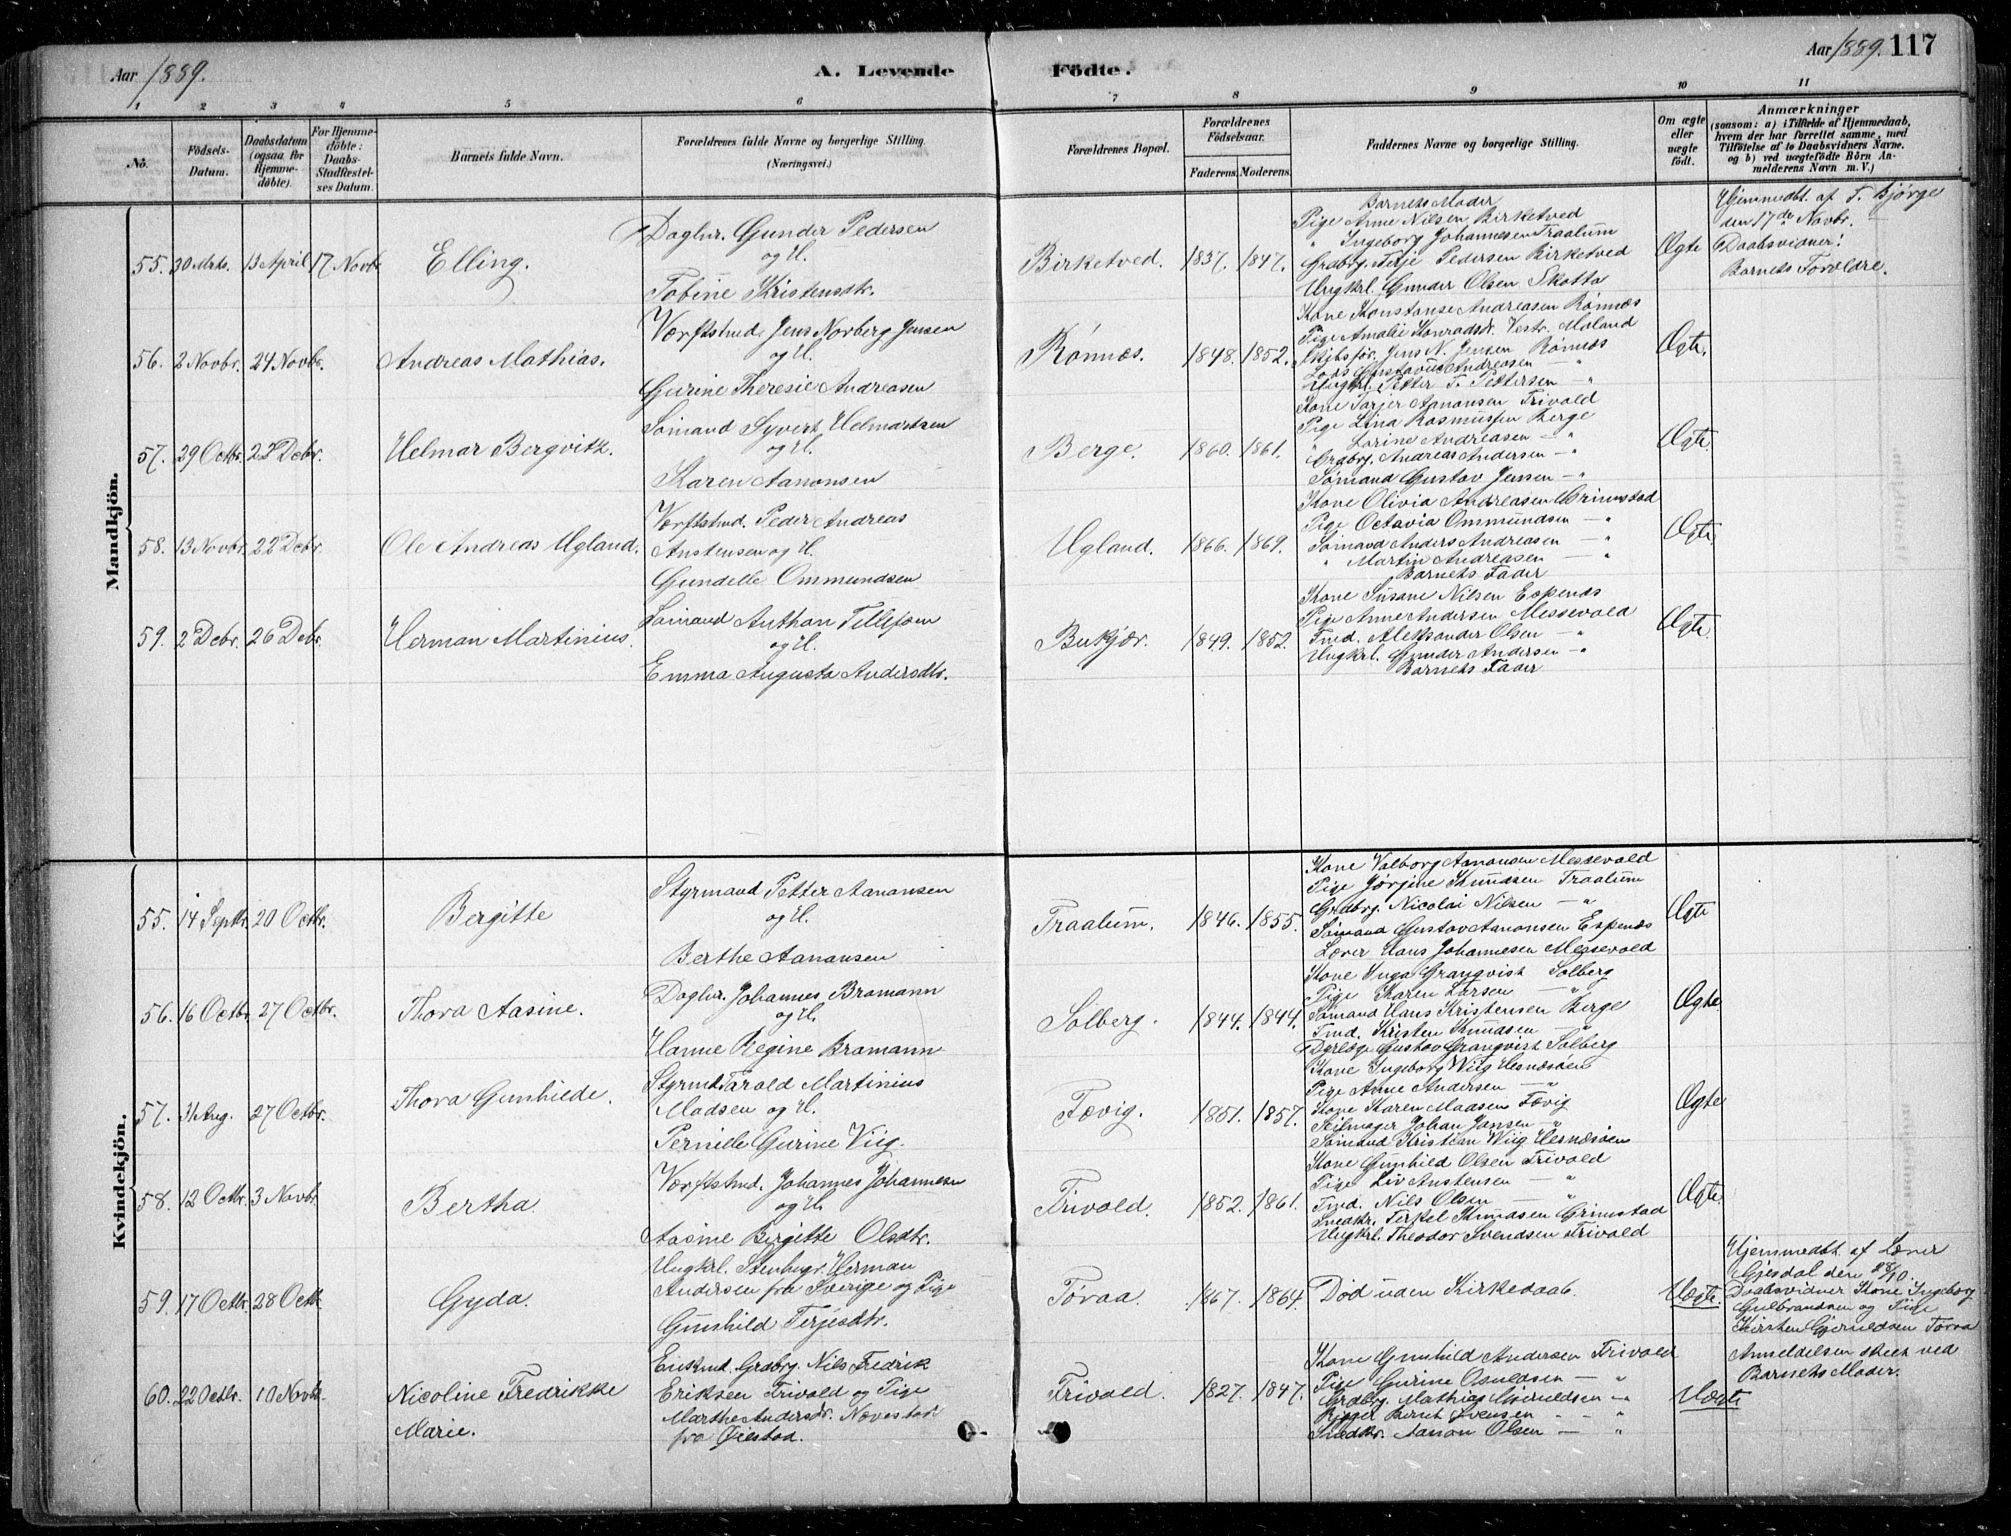 Aar 1889.
A. Levende Födte.
Aar 1889. 117
1 2 3 4 5 6 7 8 9 10 11
No.
Födsels-Datum.
Daabsdatum (ogsaa for Hjemmedöbte).
For Hjemmedöbte: Daabs-Stadfæstelses Datum.
Barnets fulde Navn.
Forældrenes fulde Navne og borgerlige Stilling. (Næringsvei.)
Forældrenes Bopæl.
Forældrenes Födselsaar.
Faderens. Moderens.
Faddernes Navne og borgerlige Stilling.
Om ægte eller uægte födt.
Anmærkninger
(saasom: a) i Tilfælde af Hjemmedaab, hvem der har forrettet samme, med Tilföielse af to Daabsvidners Navne. og b) ved uægtefödte Börn Anmelderens Navn m. V.)
Mandkjön.
55. 30 Mts. 13 April 17 Novbr. Elling.
Daglnr. Gunder Pedersen
og H.
Tobine Kristensdtr.
Birketved. 1837. 1847.
Barnets Moder
Pige Anne Nilsen Birketved
" Ingeborg Johannesen Traalum
Grdbrg. Terje Pedersen Birketved
Ungkrl. Gunder Olsen Skotta
Ægte
Hjemmedbt. af T. Bjørge
den 17de Novbr.
Daabsvidner:
Barnets Forældre.
56. 2 Novbr. 24 Novbr. Andreas Mathias.
Værftstmd. Jens Norberg Jensen
og H.
Gurine Theresie Andreasen
Rønnes. 1848. 1852.
Kone Konstanse Andreasen Rønnæs
Pige Amalie Konradsdr. Vestr. Moland
Skibsfør. Jens N. Jensen Rønnæs
Lods Gustav Andreasen "
Ungkrl. Petter T. Pettersen — "
Ægte.
57. 29 Octbr. 23 Debr. Helmar Bergvith.
Sømand Syvert Helmartsen
og H.
Karen Aanonsen
Berge. 1860. 1861.
Kone Tarjer Aanonsen Trivold
Pige Lina Rasmussen Berge
" Lorine Andreasen — "
Grdbrg. Andreas Andersen — "
Sømand Gustav Jensen — "
Ægte.
58. 13 Novbr. 22 Debr. Ole Andreas Ugland.
Værftstmd. Peder Andreas
Anstensen og H.
Gundelle Ommundsen
Ugland. 1866. 1869.
Kone Olivia Andreasen Grimstad
Pige Octavia Ommundsen — "
Sømand Anders Andreasen — "
" Martin Andreasen — "
Barnets Fader
Ægte.
59. 2 Debr. 26 Debr. Herman Martinius.
Sømand Anthon Tellefsen
og H.
Emma Augusta Andersdtr.
Bukjær. 1849. 1852.
Kone Susane Nilsen Espenæs
Pige Anne Andersen Messevold
Tmd. Aleksander Olsen — "
Ungkrl. Gunder Andersen — "
Barnets Fader
Ægte.
Kvindekjön.
55. 14 Septbr. 20 Octbr. Bergitte
Styrmand Petter Aanonsen
og H.
Berthe Aanonsen
Traalum. 1846. 1855.
Kone Valborg Aanonsen Messevold
Pige Jørgine Knudsen Traalum
Grdbrg. Nicolai Nilsen — "
Sømand Gustav Aanonsen Espenæs
Lærer Hans Johannesen Messevold
Ægte
56. 16 Octbr. 27 Octbr. Thora Aasine.
Daglnr. Johannes Bromann
og H.
Hanne Regine Bromann
Solberg. 1844. 1844.
Kone Inga Granqvist Solberg
Pige Karen Larsen — "
Sømand Hans Kristensen Berge
Tmd. Kristen Knudsen — "
Dyrlæge Gustav Granqvist Solberg
Ægte.
57. 31 Aug. 27 Octbr. Thora Gunhilde.
Styrmd. Tarald Martinius
Madsen og H.
Pernille Gurine Viig.
Fævig. 1851. 1857.
Kone Ingeborg Wiig Hesnæsøen
Pige Anne Andersen — "
Kone Karen Maasen Fævig
Seilmager Johan Jansen — "
Sømand Kristian Wiig Hesnæsøen
Ægte
58. 12 Octbr. 3 Novbr. Bertha.
Værftstmd. Johannes Johannesen
og H.
Aasine Birgitte Olsdtr.
Trivold. 1852. 1861.
Kone Gunhild Olsen Trivold
Pige Liv Anstensen — "
Tmd. Nils Olsen — "
Snedkr. Terkel Knudsen Grimstad
Ungkrl. Theodor Svendsen Trivold
Ægte.
59. 17 Octbr. 28 Octb. Gyda.
Ungkrl. Stenhugr. Herman
Andersen fra Sverige og Pige
Gunhild Terjesdtr.
Tøraa. 1867. 1864.
Død uden Kirkedaab.
Uægte.
Hjemmedbt. af Lærer
Gjesdal den 28/10.
Daabsvidner Kone Ingeborg
Gulbrandsen og Pige
Kirsten Gjeruldsen Tøraa
Anmeldelsen skeet ved
Barnets Moder.
60. 22 Octbr. 10 Novbr. Nicoline Fredrikke
Marie.
Enkemd. Grdbrg. Nils Fredrik
Eriksen Trivold og Pige
Marthe Andersdr.
fra Øiestad.
Trivold. 1827. 1847.
Kone Gunhild Andersen Trivold
Pige Gurine Osuldsen — "
Grdbrg. Mathias Gjeruldsen — "
Rigger Bernt Svensen — "
Snedkr. Aanon Olsen — "
Uægte